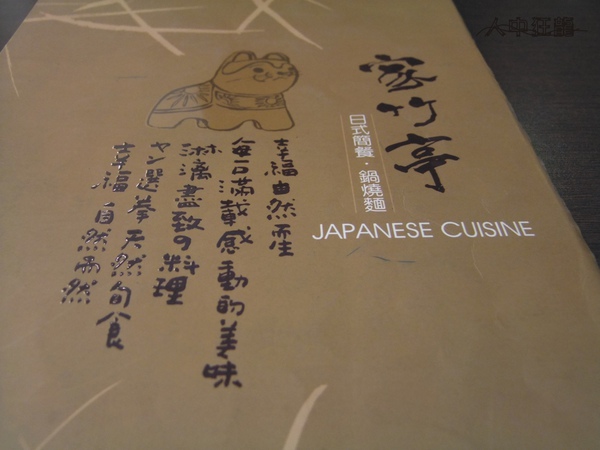 竹亭
日式簡餐・鍋燒麵
JAPANESE CUISINE
幸福自然而生
每口滿載感動的美味
淋漓盡致の料理
ヤン選拳天然旬食
幸福自然而然